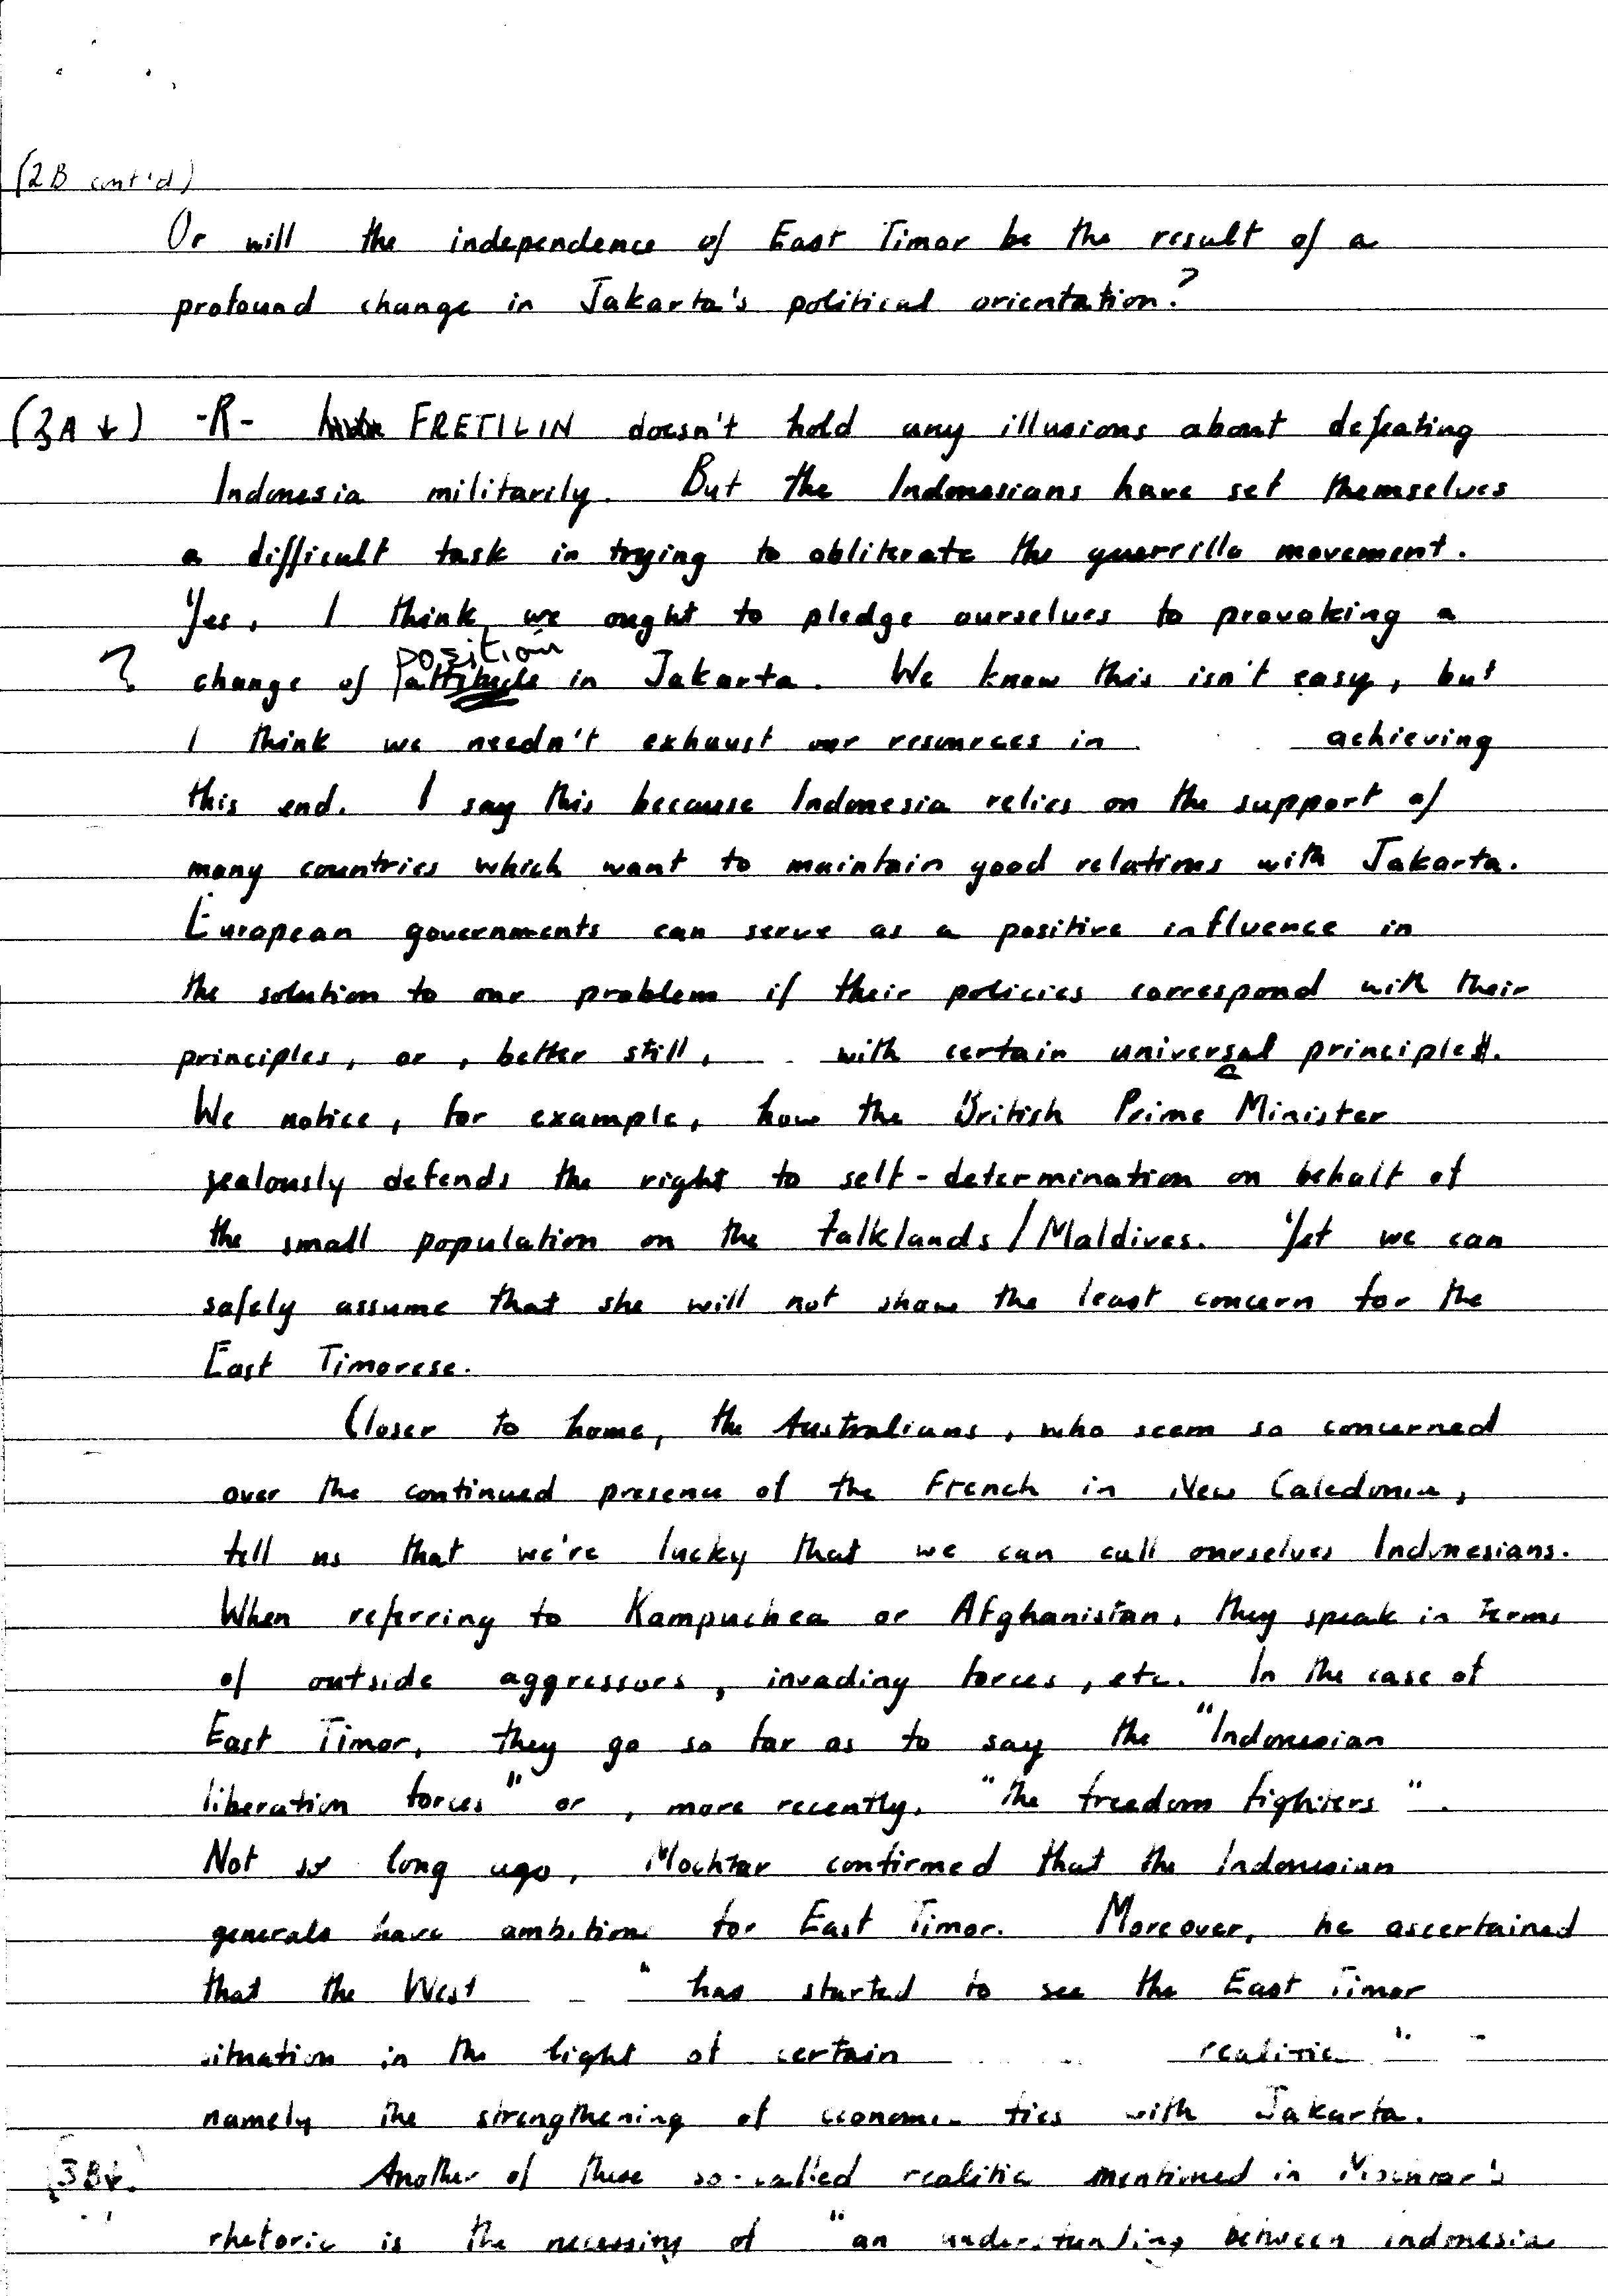 (2B cont'd)
Or will the independence of East Timor be the result of a
profound change in Jakarta's political orientation?
(3A ↓) -R- FRETILIN doesn't hold any illusions about defeating
Indonesia militarily. But the Indonesians have set themselves
a difficult task in trying to obliterate the guerrilla movement.
Yes, I think we ought to pledge ourselves to provoking a
position
? change of attitude in Jakarta. We know this isn't easy, but
I think we needn't exhaust our resources in achieving
this end. I say this because Indonesia relies on the support of
many countries which want to maintain good relations with Jakarta.
European governments can serve as a positive influence in
the solution to our problem if their policies correspond with their
principles, or, better still, with certain universal principles.
We notice, for example, how the British Prime Minister
jealously defends the right to self-determination on behalf of
the small population on the Falklands/Maldives. Yet we can
safely assume that she will not show the least concern for the
East Timorese.
Closer to home, the Australians, who seem so concerned
over the continued presence of the French in New Caledonia,
tell us that we're lucky that we can call ourselves Indonesians.
When referring to Kampuchea or Afghanistan, they speak in terms
of outside aggressors, invading forces, etc. In the case of
East Timor, they go so far as to say the "Indonesian
liberation forces" or, more recently, "the freedom fighters".
Not so long ago, Mochtar confirmed that the Indonesian
generals have ambitions for East Timor. Moreover, he ascertained
that the West "has started to see the East Timor
situation in the light of certain realities"
namely the strengthening of economic ties with Jakarta.
(3B↓) Another of these so-called realities mentioned in Mochtar's
rhetoric is the necessity of "an understanding between Indonesia